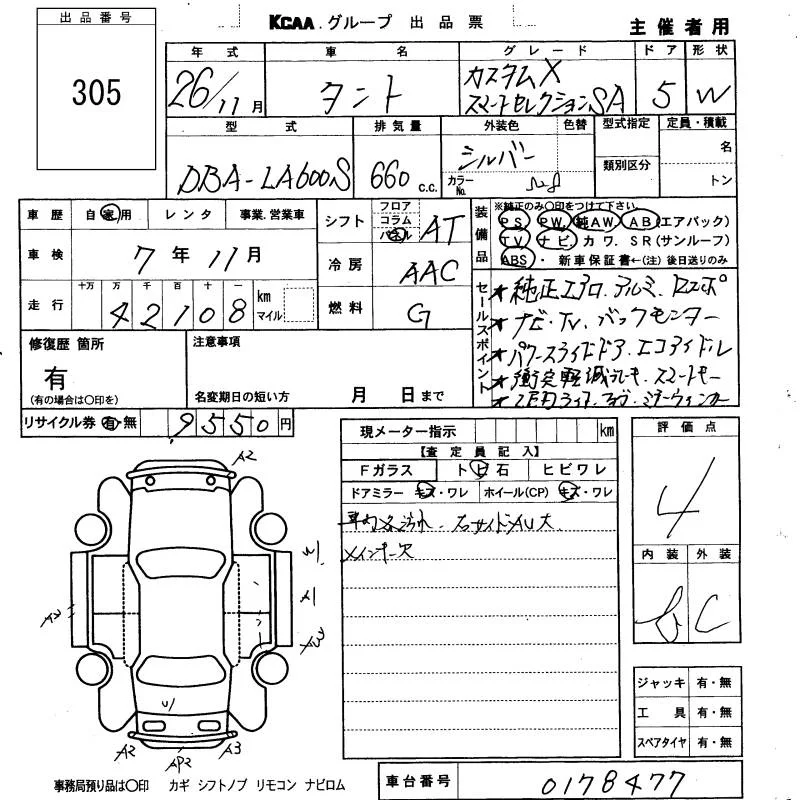 出品番号
305
KCAA グループ 出品票
主催者用
年式 車名 グレード ドア 形状
26/11月 タント カスタムX スマートセレクションSA 5 W
型式 排気量 外装色 色替 型式指定 定員・積載
DBA-LA600S 660 c.c. シルバー カラーNo. 類別区分 名 トン
車歴 自家用 レンタ 事業.営業車
車検 7年11月
走行 十万 万 千 百 十 一 km マイル
42108
シフト フロア コラム パネル AT
冷房 AAC
燃料 G
装備品 ※純正のみ○印をつけて下さい
PS PW 純AW AB(エアバック)
TV ナビ カワ. SR(サンルーフ)
ABS ・新車保証書←(注)後日送りのみ
セールスポイント
★純正エアロ.アルミ.
★ナビ.TV.バックモニター
★パワースライドドア.エコアイドル
★衝突軽減ブレーキ.スマートキー
修復歴 箇所
有
(有の場合は○印を)
注意事項
名変期日の短い方 月 日まで
リサイクル券 有・無 9550円
現メーター指示 km
【査定員記入】
Fガラス トビ石 ヒビワレ
ドアミラー キズ・ワレ ホイール(CP) キズ・ワレ
右サイドシルU大
メインキー欠
評価点
4
内装 外装
C
A2
W1
A1
XW3
A2
W1
A2
AP2
A3
ジャッキ 有・無
工具 有・無
スペアタイヤ 有・無
事務局預り品は○印 カギ シフトノブ リモコン ナビロム
車台番号 0178477